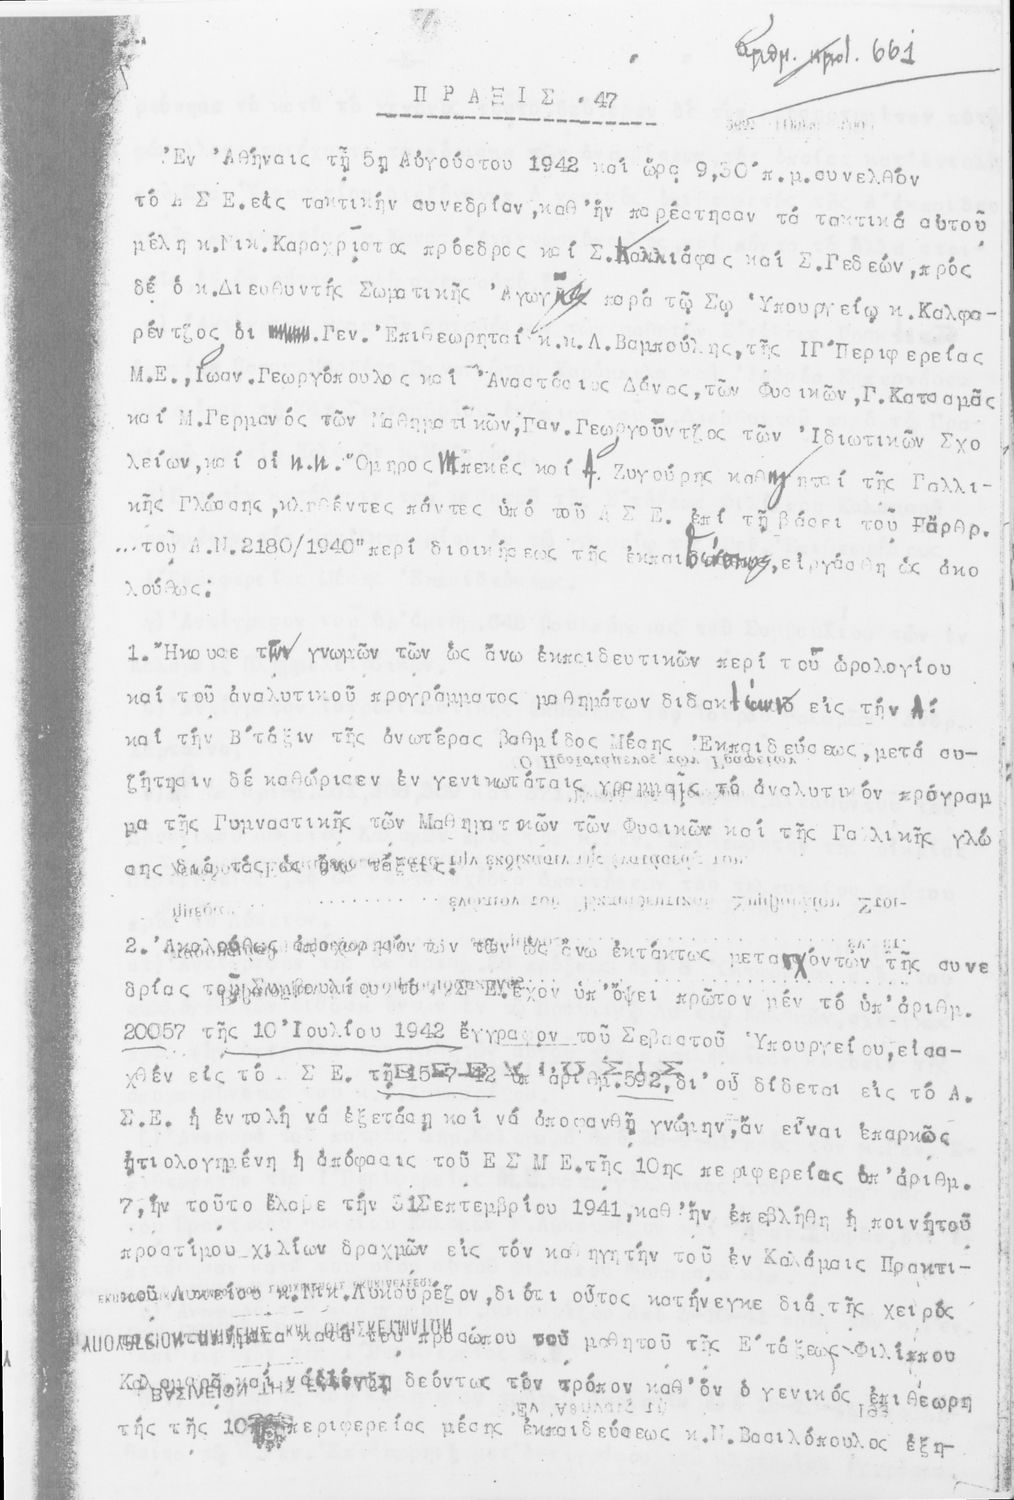 ἀριθμ. πρωτ. 661
ΠΡΑΞΙΣ .47
Ἐν Ἀθήναις τῇ 5ῃ Αὐγούστου 1942 καί ὥρᾳ 9,30΄π.μ.συνελθόν
τό Α Σ Ε.εἰς τακτικήν συνεδρίαν,καθ'ἥν παρέστησαν τά τακτικά αὐτοῦ
μέλη κ.Νικ.Καραχρίστος πρόεδρος καί Σ.Καλλιάφας καί Σ.Γεδεών,πρός
δέ ὁ κ.Διευθυντής Σωματικῆς Ἀγωγῆς παρά τῷ Σῳ Ὑπουργείῳ κ.Καλφα-
ρέντζος οἱ .Γεν.Ἐπιθεωρηταί κ.κ.Λ.Βαμπούλης,τῆς ΙΓ΄Περιφερείας
Μ.Ε.,Ἰωαν.Γεωργόπουλος καί Ἀναστάσιος Δάνας,τῶν Φυσικῶν,Γ.Κατσαμᾶς
καί Μ.Γερμανός τῶν Μαθηματικῶν,Παν.Γεωργούντζος τῶν Ἰδιωτικῶν Σχο
λείων,καί οἱ κ.κ.Ὅμηρος Μπεκές καί Α. Ζυγούρης καθηγηταί τῆς Γαλλι-
κῆς Γλώσσης,κληθέντες πάντες ὑπό τοῦ Α Σ Ε. ἐπί τῇ βάσει τοῦ ἄρθρ.
...τοῦ Α.Ν.2180/1940"περί διοικήσεως τῆς ἐκπαιδεύσεως,εἰργάσθη ὡς ἀκο
λούθως:
1.Ἤκουσε τῶν γνωμῶν τῶν ὡς ἄνω ἐκπαιδευτικῶν περί τοῦ ὡρολογίου
καί τοῦ ἀναλυτικοῦ προγράμματος μαθημάτων διδακτέων εἰς τήν Α΄
καί τήν Β΄τάξιν τῆς ἀνωτέρας βαθμίδος Μέσης Ἐκπαιδεύσεως,μετά συ-
ζήτησιν δέ καθώρισεν ἐν γενικωτάταις γραμμαῖς τό ἀναλυτικόν πρόγραμ
μα τῆς Γυμναστικῆς τῶν Μαθηματικῶν τῶν Φυσικῶν καί τῆς Γαλλικῆς γλώ
σης διά τάς ὡς ἄνω τάξεις.
2.Ἀκολούθως ἀποχωρησάντων τῶν ὡς ἄνω ἐκτάκτως μετασχόντων τῆς συνε
δρίας τοῦ Συμβουλίου,τό Α Σ Ε.ἔχον ὑπ'ὄψει πρῶτον μέν τό ὑπ'ἀριθμ.
20057 τῆς 10 Ἰουλίου 1942 ἔγγραφον τοῦ Σεβαστοῦ Ὑπουργείου,εἰσα-
χθέν εἰς τό Α Σ Ε. τῇ 15-7-42 ὑπ'ἀριθμ.592,δι'οὗ δίδεται εἰς τό Α.
Σ.Ε. ἡ ἐντολή νά ἐξετάσῃ καί νά ἀποφανθῇ γνώμην,ἄν εἶναι ἐπαρκῶς
ᾐτιολογημένη ἡ ἀπόφασις τοῦ Ε Σ Μ Ε.τῆς 10ης περιφερείας ὑπ'ἀριθμ.
7,ἥν τοῦτο ἔλαβε τήν Σεπτεμβρίου 1941,καθ'ἥν ἐπεβλήθη ἡ ποινή τοῦ
προστίμου χιλίων δραχμῶν εἰς τόν καθηγητήν τοῦ ἐν Καλάμαις Πρακτι-
κοῦ Λυκείου κ.Νικ.Λυκουρέζον,διότι οὗτος κατήνεγκε διά τῆς χειρός
κατά τοῦ προσώπου τοῦ μαθητοῦ τῆς Ε΄τάξεως Φιλίππου
Καλαμαρᾶ καί δεόντως τόν τρόπον καθ'ὅν ὁ γενικός ἐπιθεωρη
τής τῆς 10ης περιφερείας μέσης ἐκπαιδεύσεως κ.Ν.Βασιλόπουλος ἐξη-